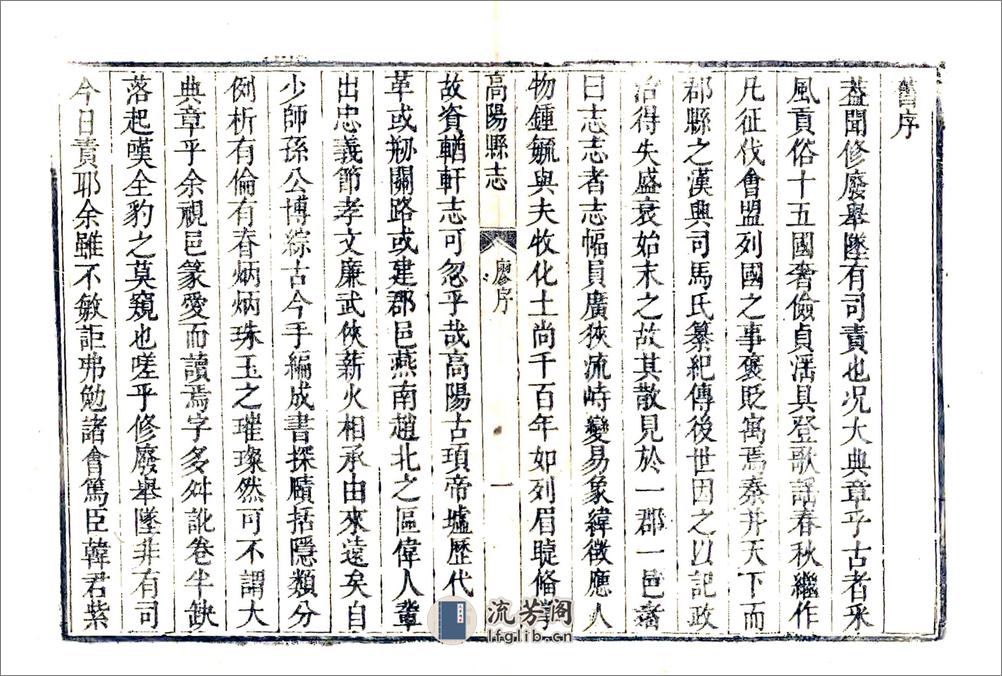 舊序
蓋聞修廢舉墜有司責也况大典章乎古者采
風貢俗十五國奢儉貞淫具登歌謡春秋繼作
凡征伐會盟列國之事褒貶寓焉秦并天下而
郡縣之漢興司馬氏纂紀傳後世因之以記政
治得失盛衰始末之故其散見於一郡一邑者
曰志志者志幅員廣狹流峙變易象緯徵應人
物鍾毓與夫牧化土尚千百年如列眉睫脩
高陽縣志
廖序
一
故資輶軒志可忽乎哉高陽古頊帝墟歷代
革或剙關路或建郡邑燕南趙北之區偉人輩
出忠義節孝文廉武俠薪火相承由來遠矣自
少師孫公博綜古今手編成書探賾括隱類分
例析有倫有脊炳炳珠玉之璀璨然可不謂大
典章乎余視邑篆愛而讀焉字多舛訛卷半缺
落起嘆全豹之莫窺也嗟乎修廢舉墜非有司
今日責耶余雖不敏詎弗勉諸會篤臣韓君紫
流芳閣
lfglib.cn